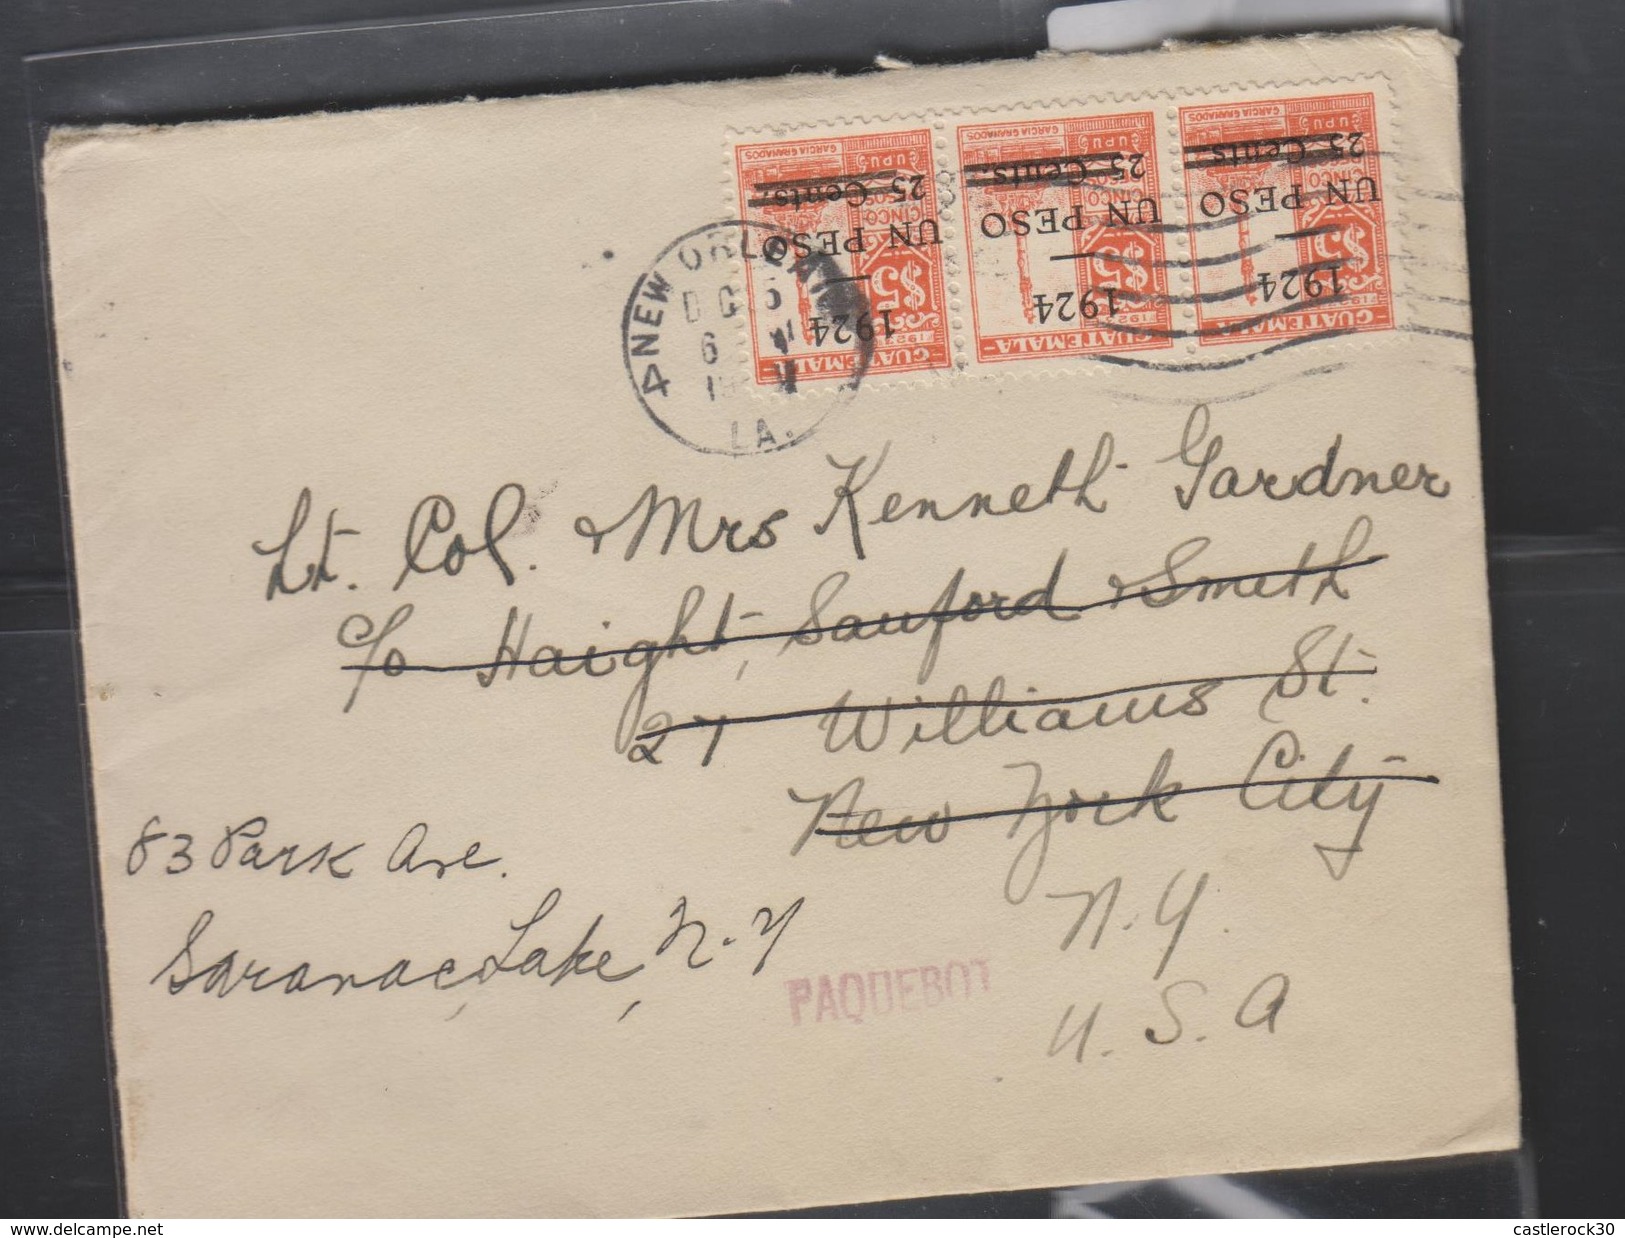 GARCIA GRANADOS GARCIA GRANADOS GARCIA GRANADOS
U.P.U. U.P.U. U.P.U.
25 Cents. 25 Cents. 25 Cents.
CINCO PESOS CINCO PESOS CINCO
UN PESO UN PESO UN PESO
$5 $5 $5
1924 1924 1924
GUATEMALA GUATEMALA GUATEMALA
NEW ORLEANS
LA.
Lt. Col. & Mrs Kenneth Gardner
c/o Haight, Sanford & Smith
27 Williams St.
New York City
N.Y.
U.S.A
83 Park Ave.
Saranac Lake, N.Y
PAQUEBOT
www.delcampe.net
castlerock30